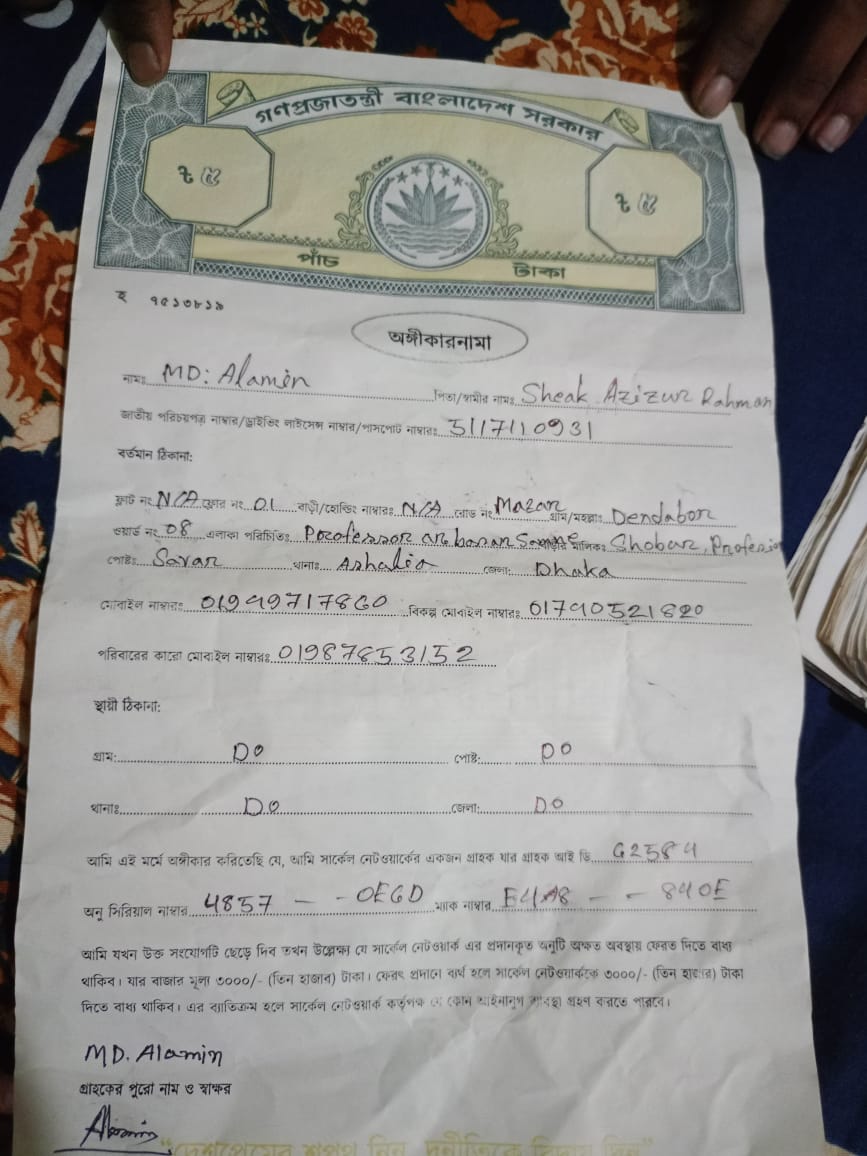 গণপ্রজাতন্ত্রী বাংলাদেশ সরকার
৳ ৫ ৳ ৫
পাঁচ টাকা
হ ৭৫১৩৮১৯
অঙ্গীকারনামা
নামঃ MD: Alamin পিতা/স্বামীর নামঃ Sheak Azizur Rahman
জাতীয় পরিচয়পত্র নাম্বার/ড্রাইভিং লাইসেন্স নাম্বার/পাসপোর্ট নাম্বারঃ 5117110931
বর্তমান ঠিকানা:
ফ্লাট নং N/A ফ্লোর নং 01 বাড়ী/হোল্ডিং নাম্বারঃ N/A রোড নং Mazar গ্রাম/মহল্লাঃ Dendabor
ওয়ার্ড নং 08 এলাকা পরিচিতিঃ মালিকঃ Shobar, Profesior
পোষ্টঃ Savar থানাঃ Ashalia জেলা: Dhaka
মোবাইল নাম্বারঃ 01949717860 বিকল্প মোবাইল নাম্বারঃ 01790521820
পরিবারের কারো মোবাইল নাম্বারঃ 01987853152
স্থায়ী ঠিকানা:
গ্রাম: DO পোষ্ট: DO
থানাঃ DO জেলা: DO
আমি এই মর্মে অঙ্গীকার করিতেছি যে, আমি সার্কেল নেটওয়ার্কের একজন গ্রাহক যার গ্রাহক আই ডি G2584
অনু সিরিয়াল নাম্বার 4857 - - 0EGD ম্যাক নাম্বার E4A8 - - 840E
আমি যখন উক্ত সংযোগটি ছেড়ে দিব তখন উল্লেক্ষ্য যে সার্কেল নেটওয়ার্ক এর প্রদানকৃত অনুটি অক্ষত অবস্থায় ফেরত দিতে বাধ্য
থাকিব। যার বাজার মূল্য ৩০০০/- (তিন হাজার) টাকা। ফেরৎ প্রদানে ব্যর্থ হলে সার্কেল নেটওয়ার্ককে ৩০০০/- (তিন হাজার) টাকা
দিতে বাধ্য থাকিব। এর ব্যতিক্রম হলে সার্কেল নেটওয়ার্ক কর্তৃপক্ষ যে কোন আইনানুগ ব্যবস্থা গ্রহণ করতে পারবে।
MD. Alamin
গ্রাহকের পুরো নাম ও স্বাক্ষর
Alamin
"দেশপ্রেমের শপথ নিন, দুর্নীতিকে বিদায় দিন"